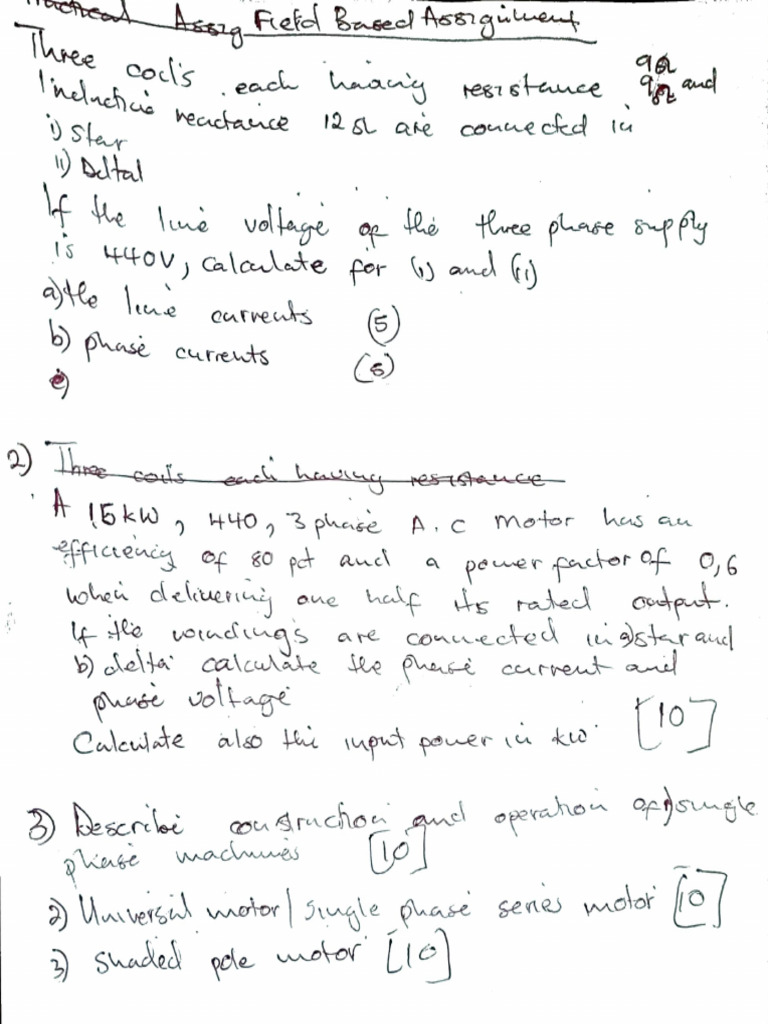 Practical Assig Field Based Assignment
Three coils each having resistance 9Ω
9Ω and
Inductive reactance 12Ω are connected in
i) Star
ii) Delta
If the line voltage of the three phase supply
is 440V, calculate for (i) and (ii)
a) the line currents (5)
b) phase currents (5)
c)
2) Three coils each having resistance
A 15kW, 440, 3 phase A.C motor has an
efficiency of 80 pct and a power factor of 0,6
when delivering one half its rated output.
If the windings are connected in a) star and
b) delta calculate the phase current and
phase voltage
Calculate also the input power in kw [10]
3) Describe construction and operation of 1) single
phase machines [10]
2) Universal motor/single phase series motor [10]
3) Shaded pole motor [10]